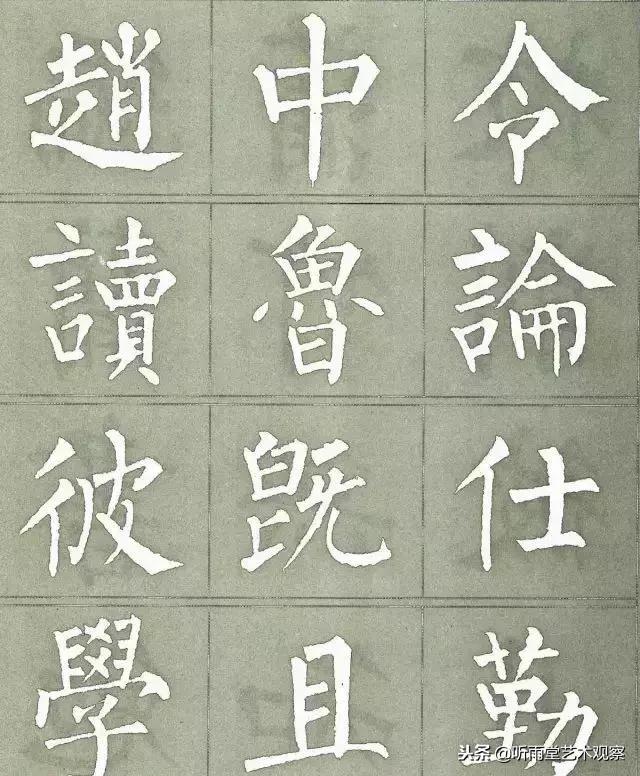 趙中令
讀魯論
彼既仕
學且勤
头条 @听雨堂艺术观察